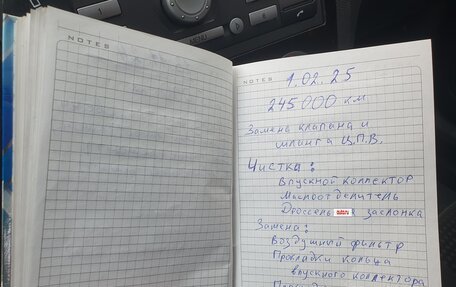 MENU
NOTES
NOTES
1.02.25
245000 км
Замена клапана и
шланга Ц.П.В.
Чистка:
Впускной коллектор
Маслоотделитель
заслонка
Замена:
Воздушный фильтр
Прокладки кольца
впускного коллектора